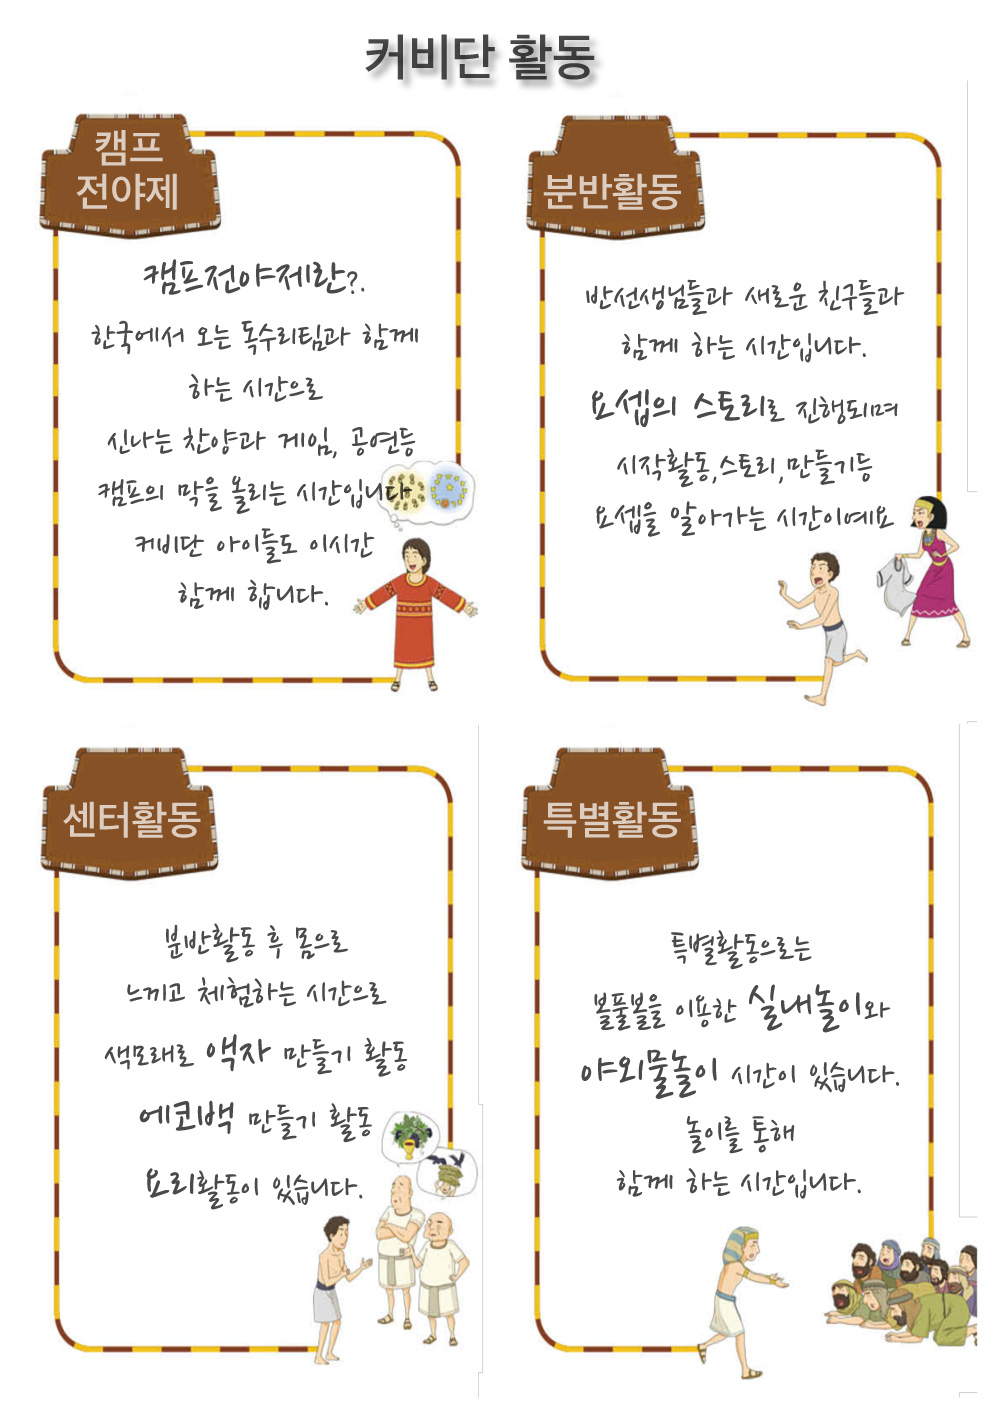 커비단 활동
캠프
전야제
캠프전야제란?.
한국에서 오는 독수리팀과 함께
하는 시간으로
신나는 찬양과 게임, 공연등
캠프의 막을 올리는 시간입니다
커비단 아이들도 이시간
함께 합니다.
분반활동
반선생님들과 새로운 친구들과
함께 하는 시간입니다.
요셉의 스토리로 진행되며
시작활동,스토리,만들기등
요셉을 알아가는 시간이예요
센터활동
분반활동 후 몸으로
느끼고 체험하는 시간으로
색모래로 액자 만들기 활동
에코백 만들기 활동
요리활동이 있습니다.
특별활동
특별활동으로는
볼풀볼을 이용한 실내놀이와
야외물놀이 시간이 있습니다.
놀이를 통해
함께 하는 시간입니다.